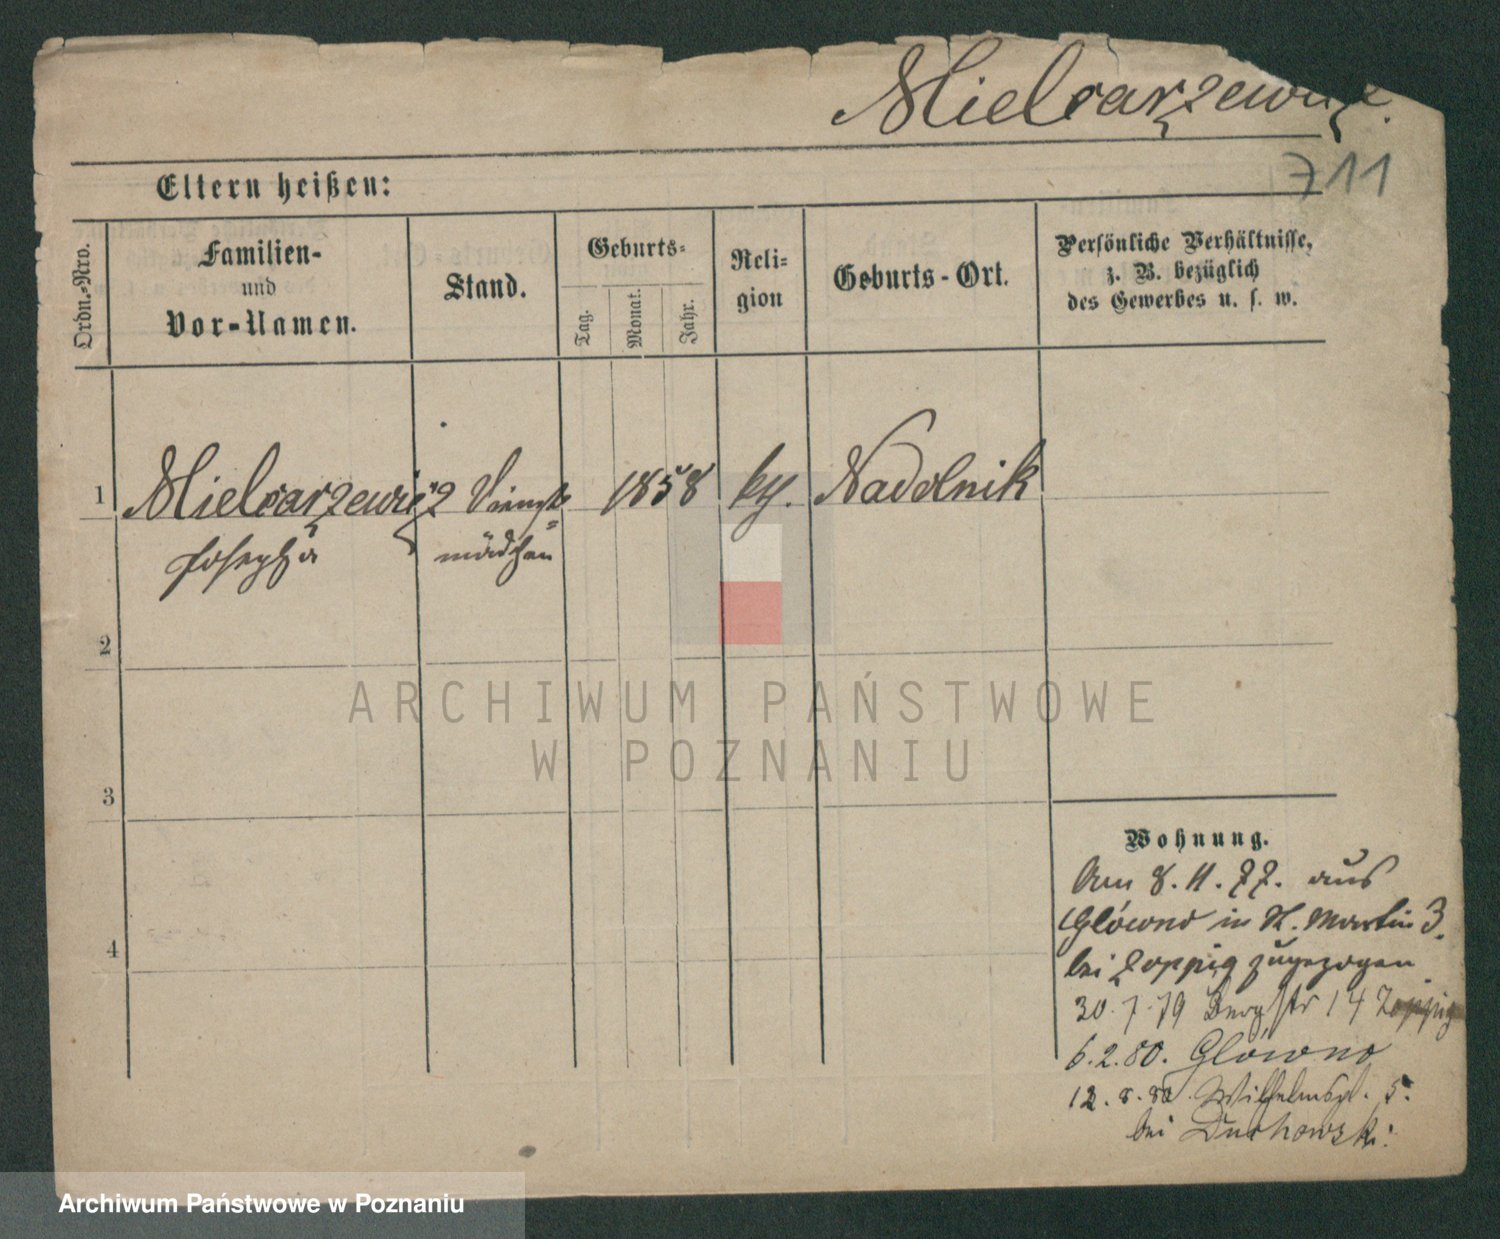 Mielcarzewicz.
711
Eltern heißen:
Ordn.-Nro.
Familien-
und
Vor-Namen.
Stand.
Geburts-
Tag.
Monat.
Jahr.
Reli-
gion
Geburts-Ort.
Persönliche Verhältnisse,
z. B. bezüglich
des Gewerbes u. s. w.
1 Mielcarzewicz Dienst= 1858 Nadolnik
Josepha mädchen
2
3
4
Wohnung.
Am 8. 11. 77. aus
Główno in St. Martin 3.
bei Zoppig zugezogen
30.7.79 Bergstr 14 Zoppig
6.2.80. Glowno
12.8.80. Wilhelmspl. 5.
bei Duchowski.
ARCHIWUM PAŃSTWOWE
W POZNANIU
Archiwum Państwowe w Poznaniu